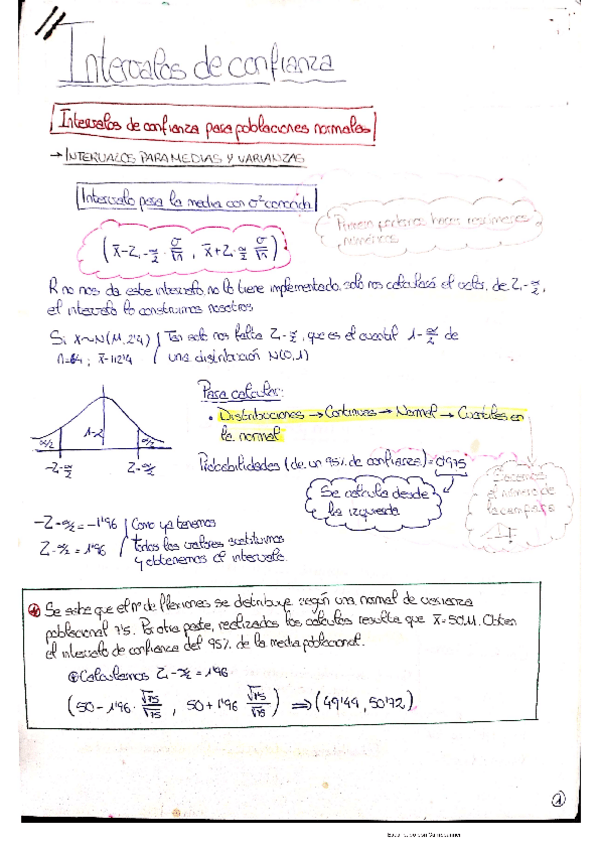 Intervalos de confianza
Intervalos de confianza para poblaciones normales
→ INTERVALOS PARA MEDIAS Y VARIANZAS
Intervalo para la media con σ² conocida
(x̄-Z₁-α/2 · σ/√n , x̄+Z₁-α/2 · σ/√n)
numéricos
R no nos da este intervalo, no lo tiene implementado, solo nos calculará el valor de Z₁-α/2,
el intervalo lo construimos nosotros
Si X~N(M, 2'4) Tan solo nos falta Z₁-α/2, que es el cuantil 1-α/2 de
n=64; x̄=112'4 una distribución N(0,1)
Para calcular:
• Distribuciones → Continuas → Normal → Cuantiles en
la normal
1-α
α/2 α/2
-Z-α/2 Z-α/2
Probabilidades (de un 95% de confianza) = 0'975
Se calcula desde
la izquierda
el número de
la campana
-Z-α/2 = -1'96 Como ya tenemos
Z-α/2 = 1'96 todos los valores sustituimos
y obtenemos el intervalo.
Se sabe que el nº de flexiones se distribuye según una normal de varianza
poblacional 7'5. Por otra parte, realizados los cálculos resulta que x̄=50,11. Obten
el intervalo de confianza del 95% de la media poblacional.
Calculamos Z₁-α/2 = 1'96
(50-1'96 · √7'5/√75 , 50+1'96 √7'5/√75) ⇒ (49'49, 50'72)
1